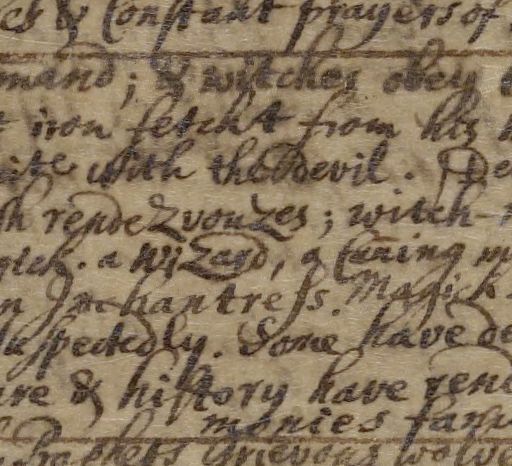 & Constant prayers of
mand; & witches obey
iron fetcht from his
with the devil. De
rendeZvouZes; witch-
a WiZard, a Cuning m
Inchantress. Magick
suspectedly. Some have de
& history have rend
monies
Prophets grievous wolve